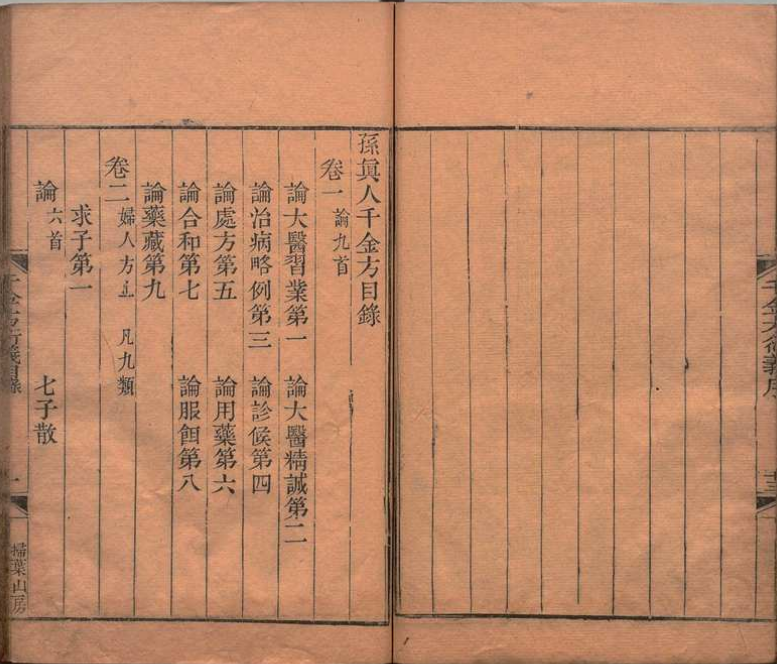 孫眞人千金方目錄
卷一 論九首
論大醫習業第一 論大醫精誠第二
論治病略例第三 論診候第四
論處方第五 論用藥第六
論合和第七 論服餌第八
論藥藏第九
卷二 婦人方上 凡九類
求子第一
論六首 七子散
千金方衍義目錄 一 掃葉山房
千金方衍義序 十三